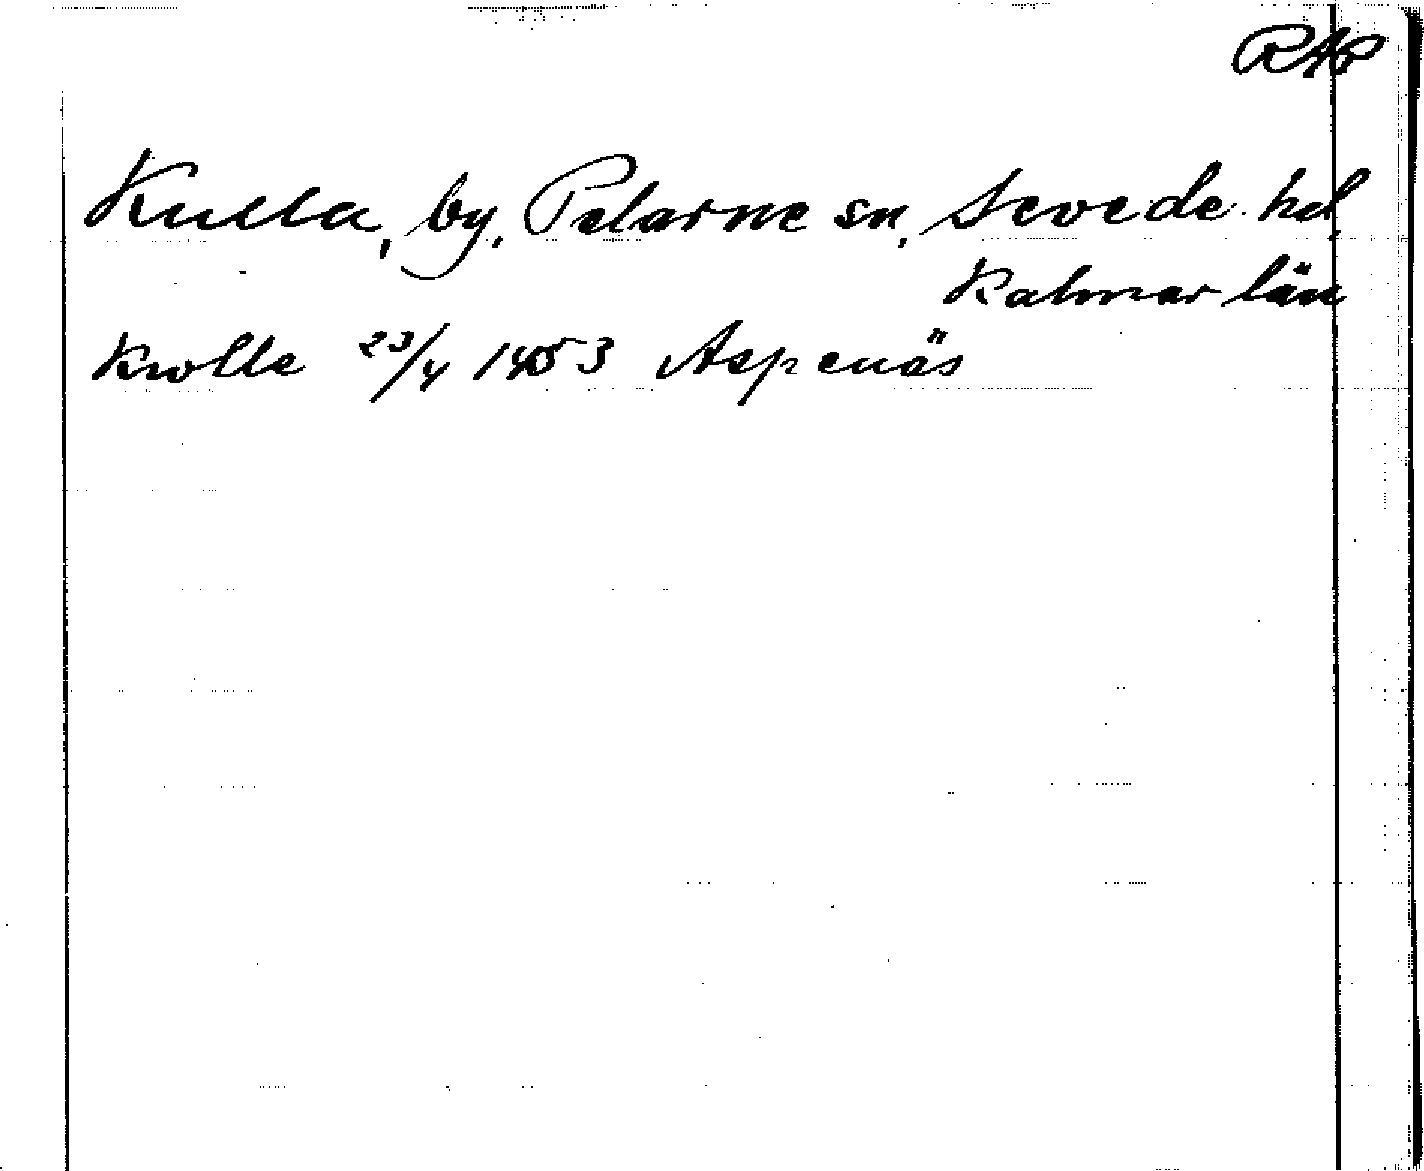 RAP
Kulla, by, Pelarne sn, Sevede hd,
Kalmar län
Krolle 23/4 1453 Aspenäs